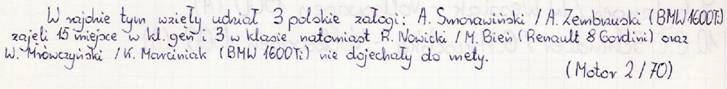 W rajdzie tym wzięły udział 3 polskie załogi: A. Smorawiński / A. Zembrzuski (BMW 1600Ti)
zajeli 15 miejsce w kl. gen i 3 w klasie natomiast R. Nowicki / M. Bień (Renault 8 Gordini) oraz
W. Mrówczyński / K. Marciniak (BMW 1600Ti) nie dojechały do mety.
(Motor 2/70)